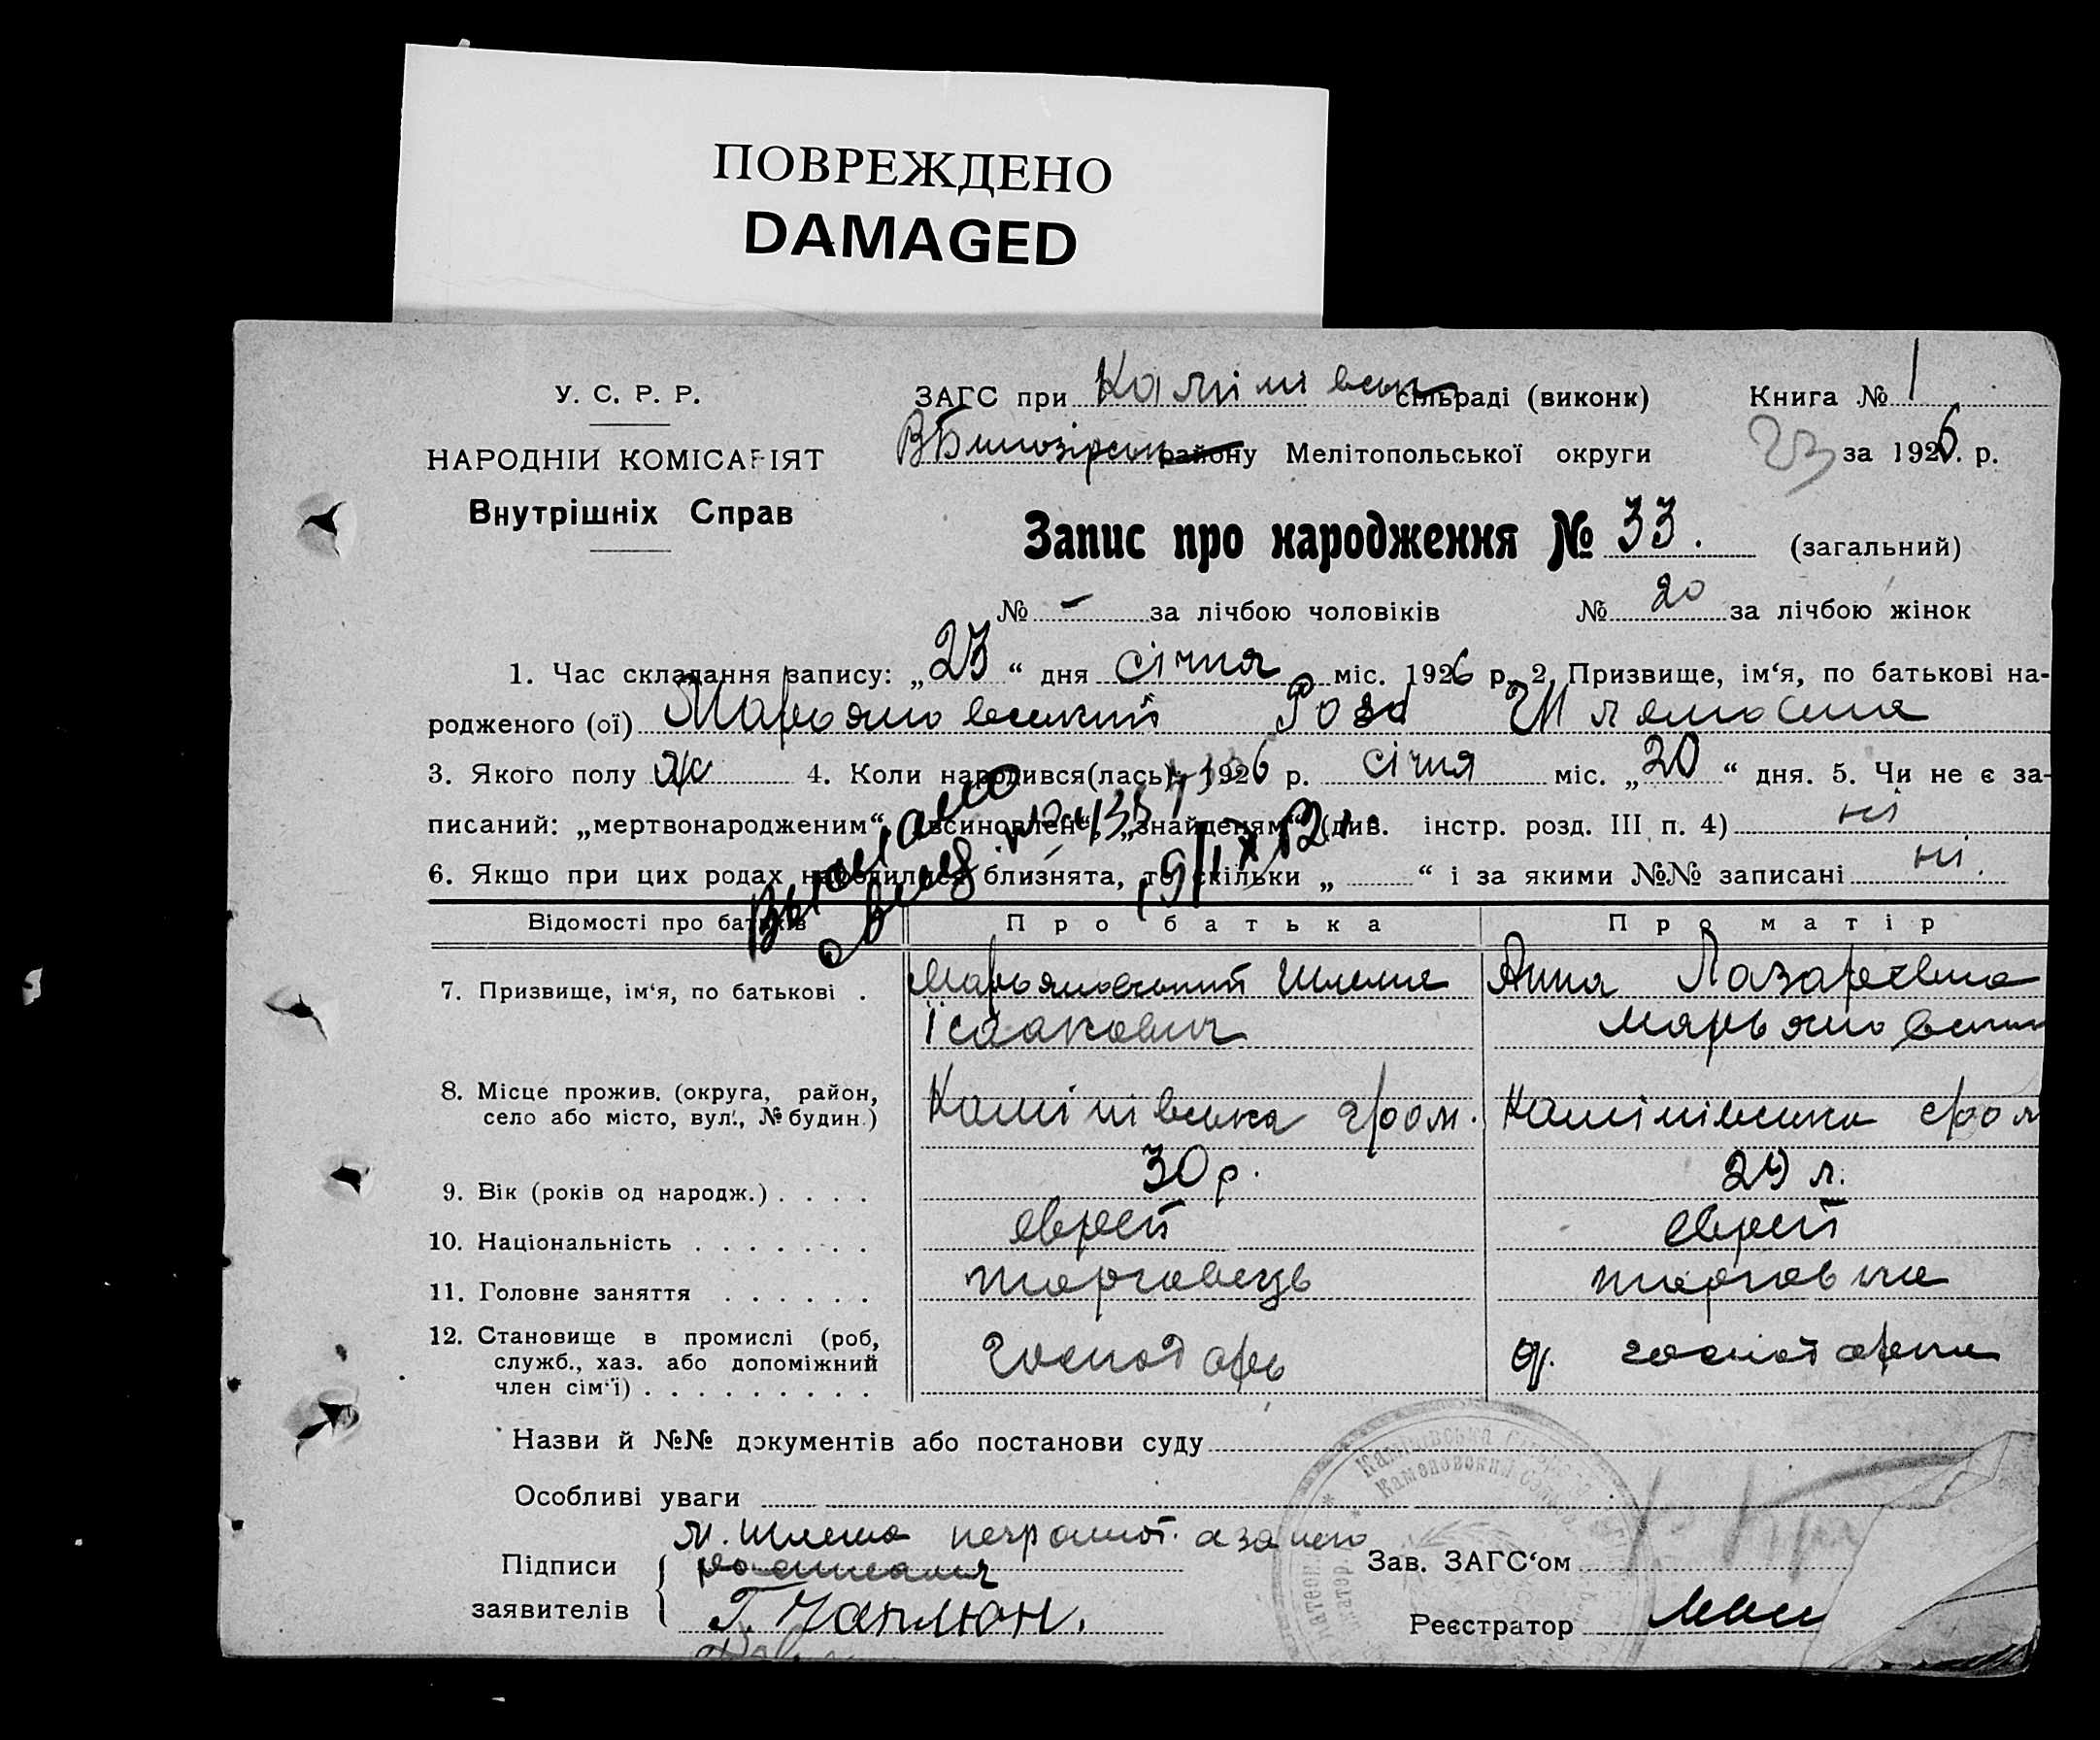 ПОВРЕЖДЕНО
DAMAGED
У. С. Р. Р.
НАРОДНІЙ КОМІСАРІЯТ
Внутрішніх Справ
ЗАГС при сільраді (виконк)
району Мелітопольської округи
Книга № 1
23 за 1926. р.
Запис про народження № 33. (загальний)
№ – за лічбою чоловіків № 20 за лічбою жінок
1. Час складання запису: „23“ дня січня міс. 1926 р. 2. Призвище, ім‘я, по батькові на-
родженого (ої) Марьяновський Роза Шлемовна
3. Якого полу ж 4. Коли народився(лась) 1926 р. січня міс. „20“ дня. 5. Чи не є за-
писаний: „мертвонародженим“, „всиновлен“, „знайденям“ (див. інстр. розд. III п. 4) ні
6. Якщо при цих родах народилися близнята, то скільки „ “ і за якими №№ записані ні.
Відомості про батьків Про батька Про матір
7. Призвище, ім‘я, по батькові . Марьяновський Шлема Анна Лазаревна
Ісаакович
8. Місце прожив. (округа, район,
село або місто, вул., № будин.) Камінівська гром. Камінівська гром
9. Вік (років од народж.) . . . . 30 р. 29 л.
10. Національність . . . . . . . єврей єврей
11. Головне заняття . . . . . . торговець торговка
12. Становище в промислі (роб,
служб., хаз. або допоміжний
член сім‘ї) . . . . . . . . . господарь господарка
Назви й №№ документів або постанови суду
Особливі уваги
М. Шлема неграмот. а за него
Підписи
заявителів
Г. Каплюн.
Зав. ЗАГС‘ом
Реєстратор